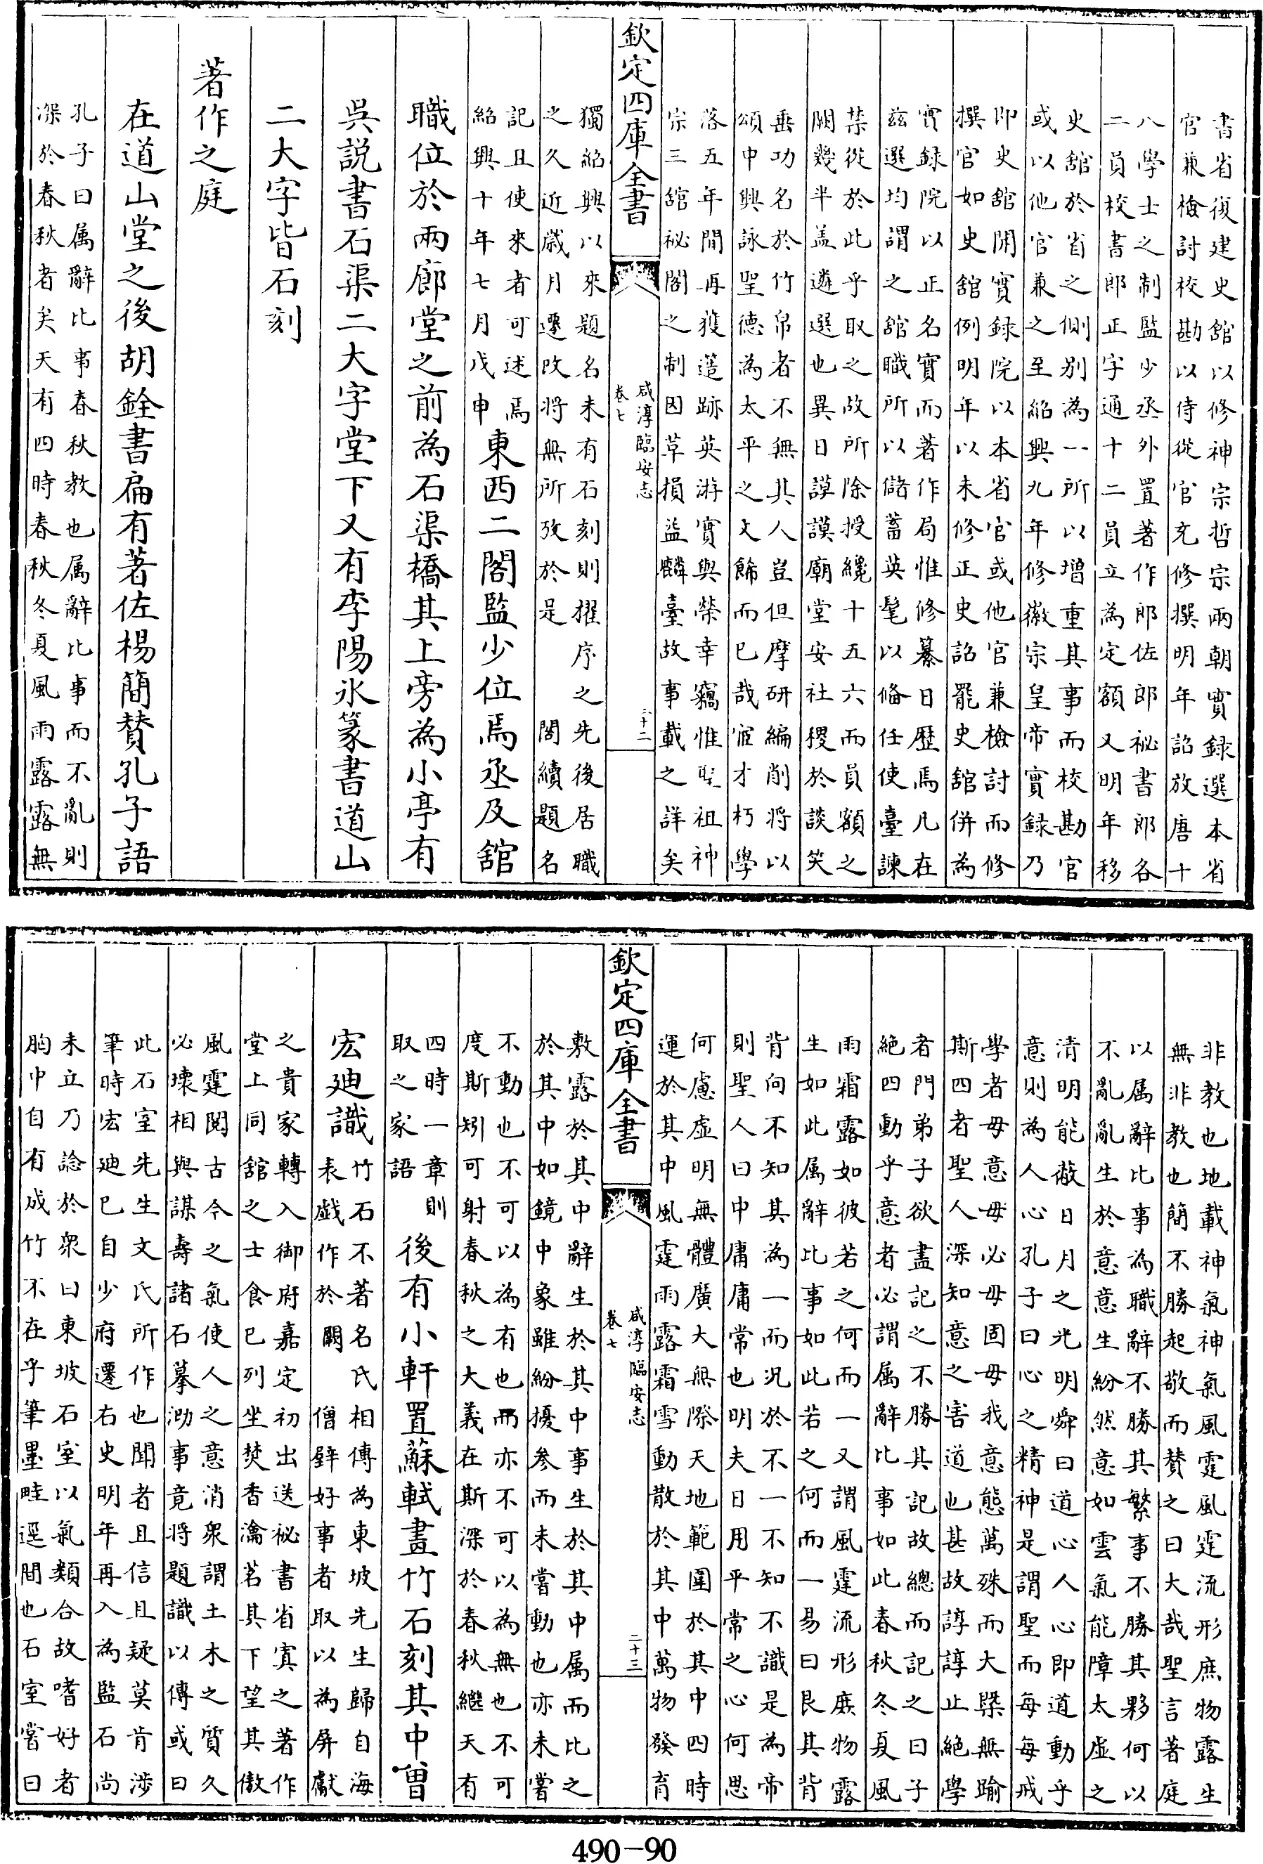 書省復建史館以修神宗哲宗兩朝實録選本省
官兼檢討校勘以侍從官充修撰明年詔放唐十
八學士之制監少丞外置著作郎佐郎祕書郎各
二員校書郎正字通十二員立為定額又明年移
史館於省之側别為一所以增重其事而校勘官
或以他官兼之至紹興九年修徽宗皇帝實録乃
即史館開實録院以本省官或他官兼檢討而修
撰官如史館例明年以未修正史詔罷史館併為
實録院以正名實而著作局惟修纂日歷焉凡在
兹選均謂之館職所以儲蓄英髦以俻任使臺諫
禁從於此乎取之故所除授纔十五六而員額之
闕幾半盖遴選也異日謨謨廟堂安社稷於談笑
垂功名於竹帛者不無其人豈但摩研編削將以
頌中興詠聖德為太平之文飾而已哉宦才朽學
落五年間再獲造跡英游實與榮幸竊惟聖祖神
宗三館祕閣之制因草損益麟臺故事載之詳矣
欽定四庫全書
咸淳臨安志
卷七
二十二
獨紹興以來題名未有石刻則擢序之先後居職
之久近歲月遷改將無所攷於是 閣續題名
記且使來者可述焉
紹興十年七月戊申
東西二閣監少位焉丞及館
職位於兩廊堂之前為石渠橋其上旁為小亭有
吳説書石渠二大字堂下又有李陽氷篆書道山
二大字皆石刻
著作之庭
在道山堂之後胡銓書扁有著佐楊簡賛孔子語
孔子曰属辭比事春秋教也属辭比事而不亂則
深於春秋者矣天有四時春秋冬夏風雨露露無
非教也地載神氣神氣風霆風霆流形庶物露生
無非教也簡不勝起敬而賛之曰大哉聖言著庭
以属辭比事為職辭不勝其繁事不勝其夥何以
不亂亂生於意意生紛然意如雲氣能障太虛之
清明能蔽日月之光明舜曰道心人心即道動乎
意則為人心孔子曰心之精神是謂聖而每每戒
學者毋意毋必毋固毋我意態萬殊而大槩無踰
斯四者聖人深知意之害道也甚故諄諄止絶學
者門弟子欲盡記之不勝其記故總而記之曰子
絶四動乎意者必謂属辭比事如此春秋冬夏風
雨霜露如彼若之何而一又謂風霆流形庶物露
生如此属辭比事如此若之何而一易曰艮其背
背向不知其為一而况於不一不知不識是為帝
則聖人曰中庸庸常也明夫日用平常之心何思
何慮虛明無體廣大無際天地範圍於其中四時
運於其中風霆雨露霜雪動散於其中萬物發育
欽定四庫全書
咸淳臨安志
卷七
二十三
敷露於其中辭生於其中事生於其中属而比之
於其中如鏡中象雖紛擾參而未嘗動也亦未嘗
不動也不可以為有也而亦不可以為無也不可
度斯矧可射春秋之大義在斯深於春秋繼天有
四時一章則
取之家語
後有小軒置蘇軾畫竹石刻其中曾
宏廸識
竹石不著名氏相傳為東坡先生歸自海
表戲作於闕 僧壁好事者取以為屏獻
之貴家轉入御府嘉定初出送祕書省寘之著作
堂上同館之士食已列坐焚香瀹茗其下望其傲
風霆閱古今之氣使人之意消衆謂土木之質久
必壞相與謀壽諸石摹泐事竟將題識以傳或曰
此石室先生文氏所作也聞者且信且疑莫肯涉
筆時宏廸已自少府遷右史明年再入為監石尚
未立乃諗於衆曰東坡石室以氣類合故嗜好者
胸中自有成竹不在乎筆墨畦逕間也石室嘗曰
490-90